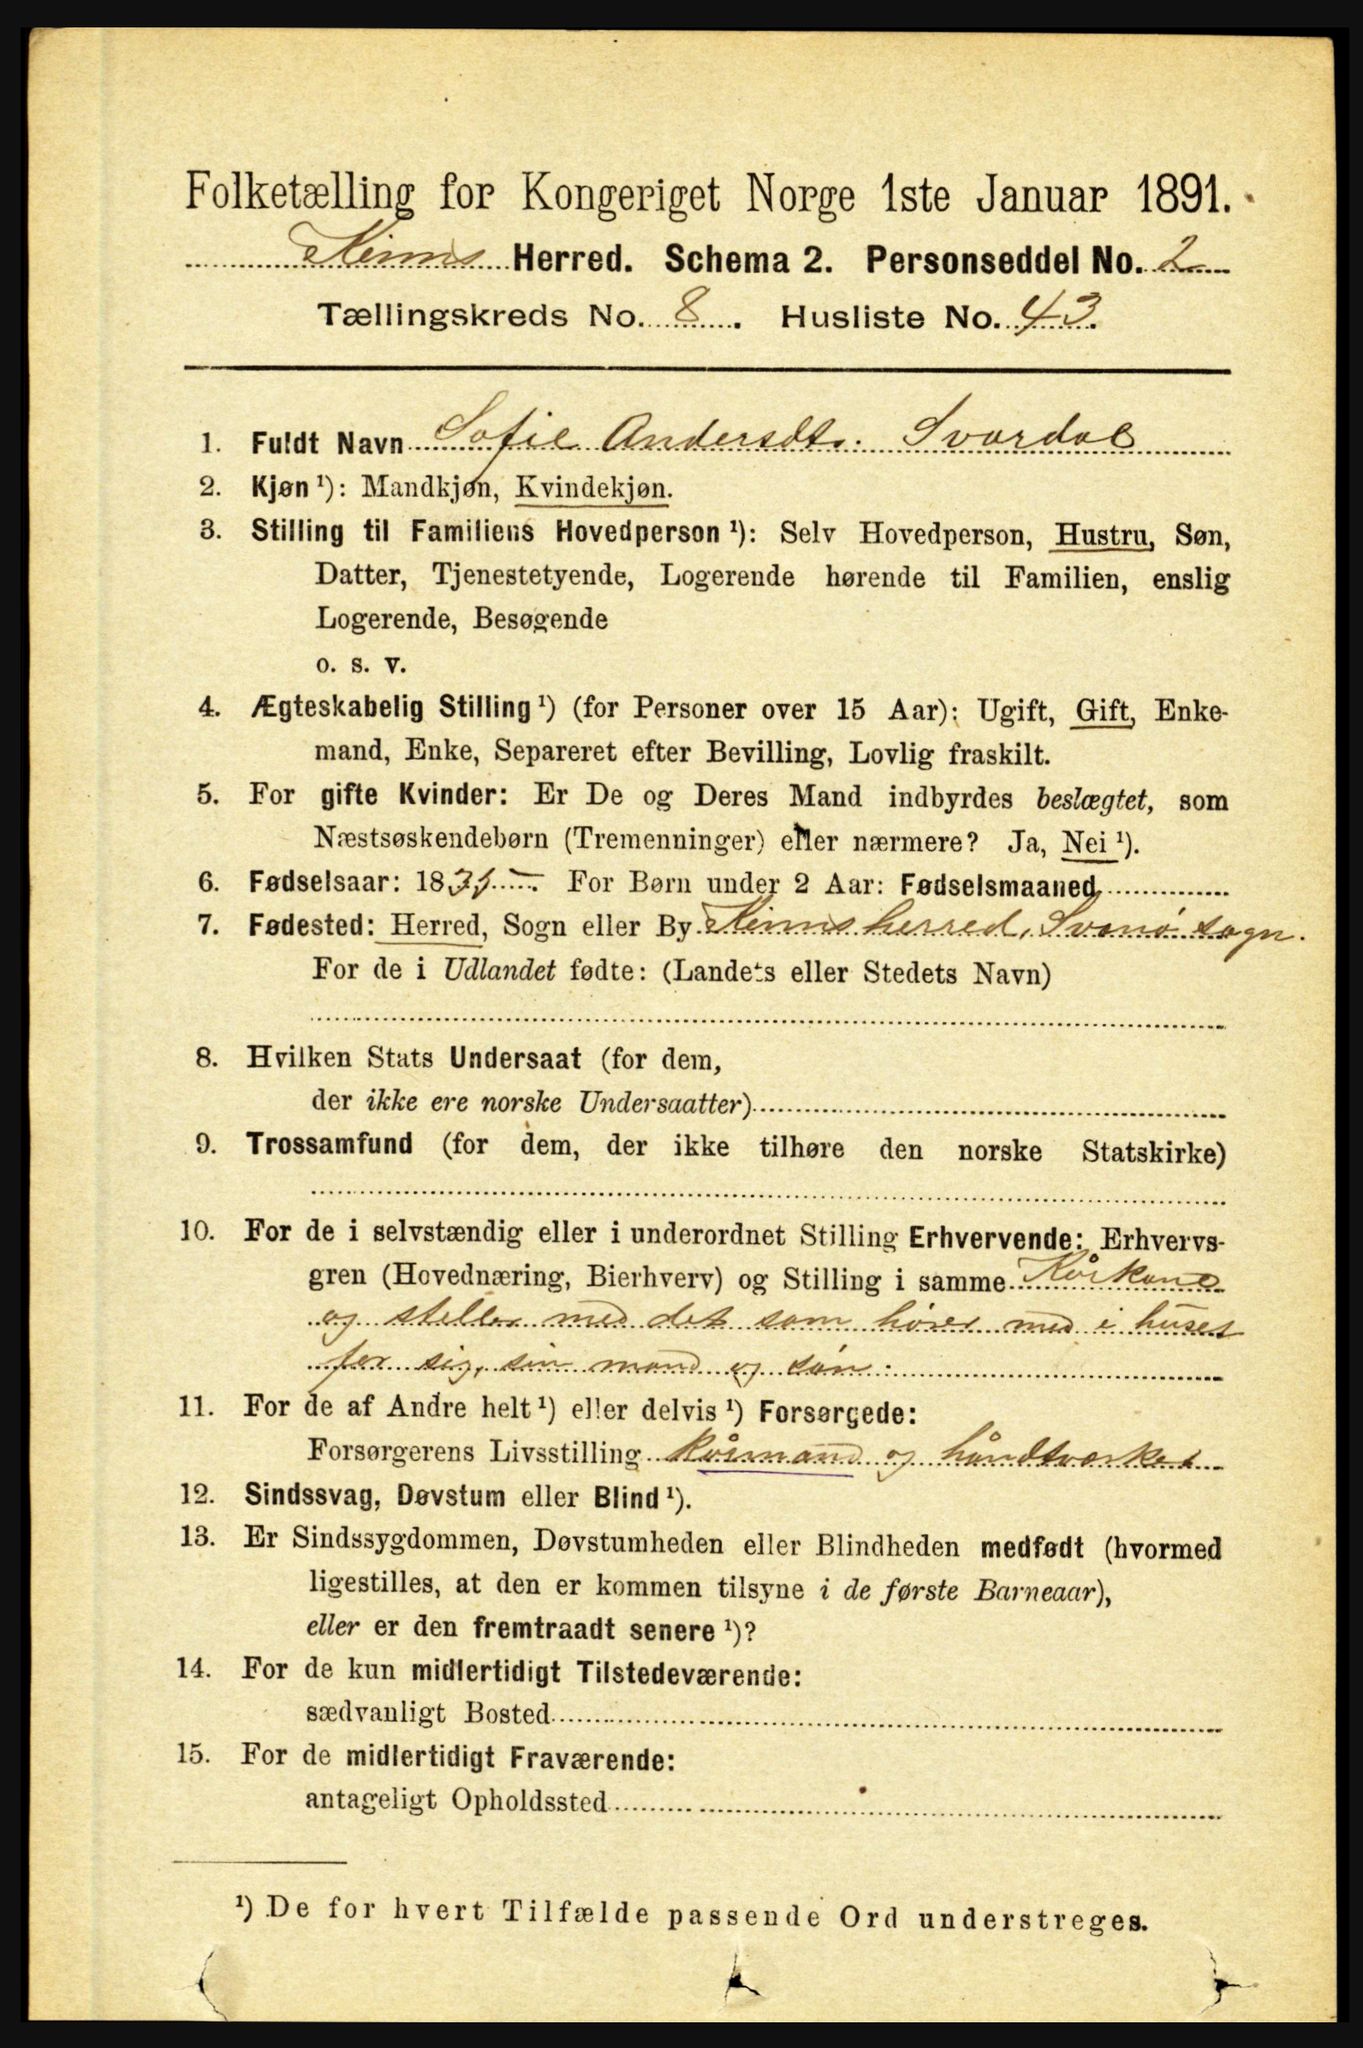 Folketælling for Kongeriget Norge 1ste Januar 1891.
Kinns Herred. Schema 2. Personseddel No. 2
Tællingskreds No. 8. Husliste No. 43.
1. Fuldt Navn Sofie Andersdtr. Svardal
2. Kjøn ¹): Mandkjøn, Kvindekjøn.
3. Stilling til Familiens Hovedperson ¹): Selv Hovedperson, Hustru, Søn,
Datter, Tjenestetyende, Logerende hørende til Familien, enslig
Logerende, Besøgende
o. s. v.
4. Ægteskabelig Stilling ¹) (for Personer over 15 Aar): Ugift, Gift, Enke-
mand, Enke, Separeret efter Bevilling, Lovlig fraskilt.
5. For gifte Kvinder: Er De og Deres Mand indbyrdes beslægtet, som
Næstsøskendebørn (Tremenninger) eller nærmere? Ja, Nei ¹).
6. Fødselsaar: 18 For Børn under 2 Aar: Fødselsmaaned
7. Fødested: Herred, Sogn eller By Kinns herred, Svanø sogn.
For de i Udlandet fødte: (Landets eller Stedets Navn)
8. Hvilken Stats Undersaat (for dem,
der ikke ere norske Undersaatter)
9. Trossamfund (for dem, der ikke tilhøre den norske Statskirke)
10. For de i selvstændig eller i underordnet Stilling Erhvervende: Erhvervs-
gren (Hovednæring, Bierhverv) og Stilling i samme Kårkone
og steller med det som hører med i huset
for sig, sin mand og søn.
11. For de af Andre helt ¹) eller delvis ¹) Forsørgede:
Forsørgerens Livsstilling kårmand og håndtværker
12. Sindssvag, Døvstum eller Blind ¹).
13. Er Sindssygdommen, Døvstumheden eller Blindheden medfødt (hvormed
ligestilles, at den er kommen tilsyne i de første Barneaar),
eller er den fremtraadt senere ¹)?
14. For de kun midlertidigt Tilstedeværende:
sædvanligt Bosted
15. For de midlertidigt Fraværende:
antageligt Opholdssted
¹) De for hvert Tilfælde passende Ord understreges.